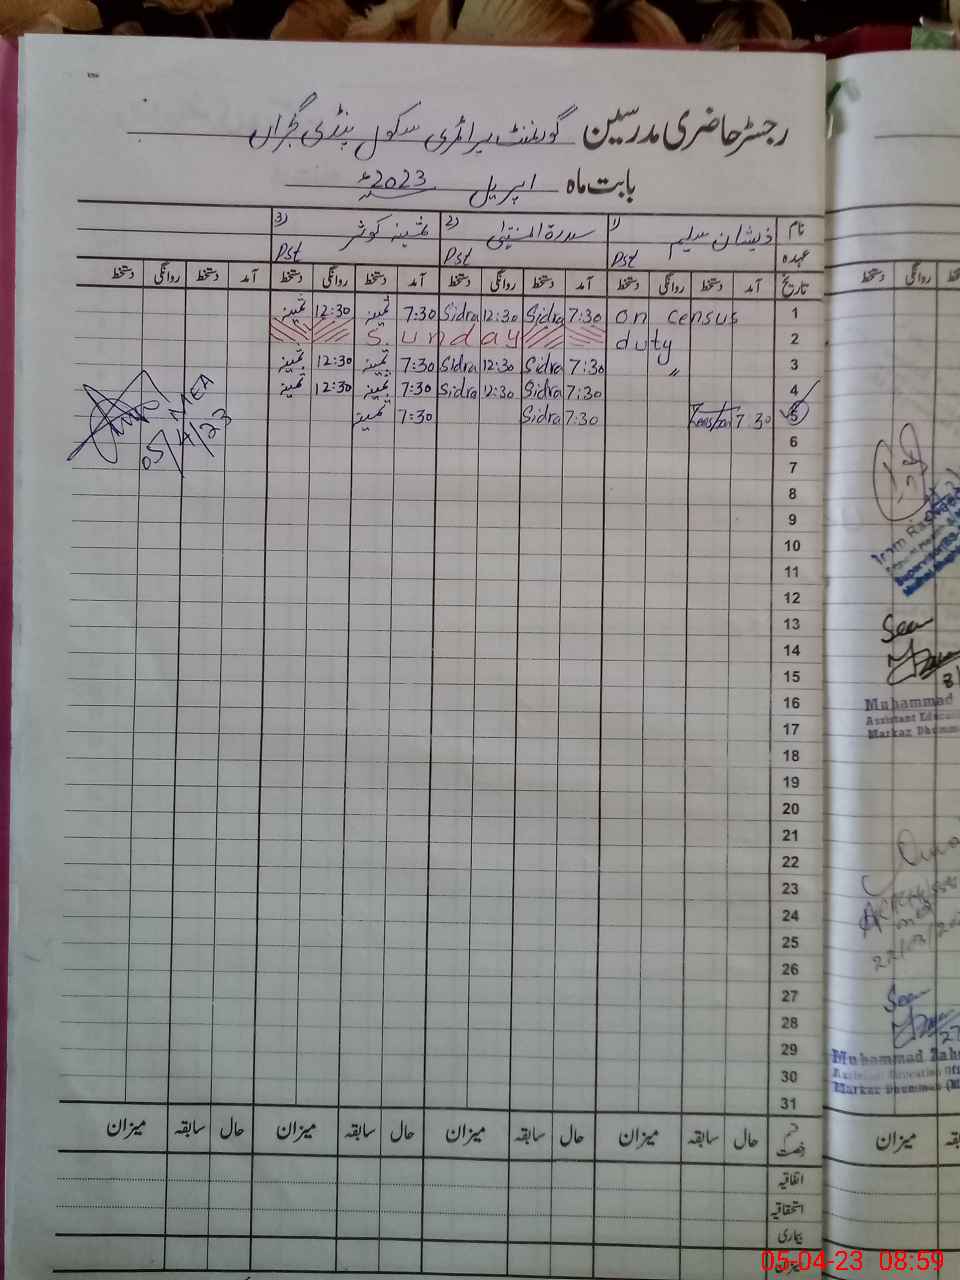 رجسٹر حاضری مدرسین گورنمنٹ پرائمری سکول پنڈی گجراں
بابت ماہ اپریل 2023ء
نام 1) ذیشان سلیم 2) سدرۃ المنتہیٰ 3) ثمینہ کوثر
عہدہ Pst Pst Pst
تاریخ آمد دستخط روانگی دستخط آمد دستخط روانگی دستخط آمد دستخط روانگی دستخط آمد دستخط روانگی دستخط
1 on census 7:30 Sidra 12:30 Sidra 7:30 ثمینہ 12:30 ثمینہ
2 duty Sunday
3 〃 7:30 Sidra 12:30 Sidra 7:30 ثمینہ 12:30 ثمینہ
4 7:30 Sidra 12:30 Sidra 7:30 ثمینہ 12:30 ثمینہ
5 7:30 7:30 Sidra 7:30 ثمینہ
MEA
05/4/23
6
7
8
9
10
11
12
13
14
15
16
17
18
19
20
21
22
23
24
25
26
27
28
29
30
31
قسم رخصت حال سابقہ میزان حال سابقہ میزان حال سابقہ میزان حال سابقہ میزان
اتفاقیہ
استحقاقیہ
بیماری
میزان
دستخط روانگی
Seen
Muhammad
Markaz Dhumman
Seen
27
Muhammad Zah
Assistant Education Off
Markaz Dhumman (M
میزان
05-04-23 08:59